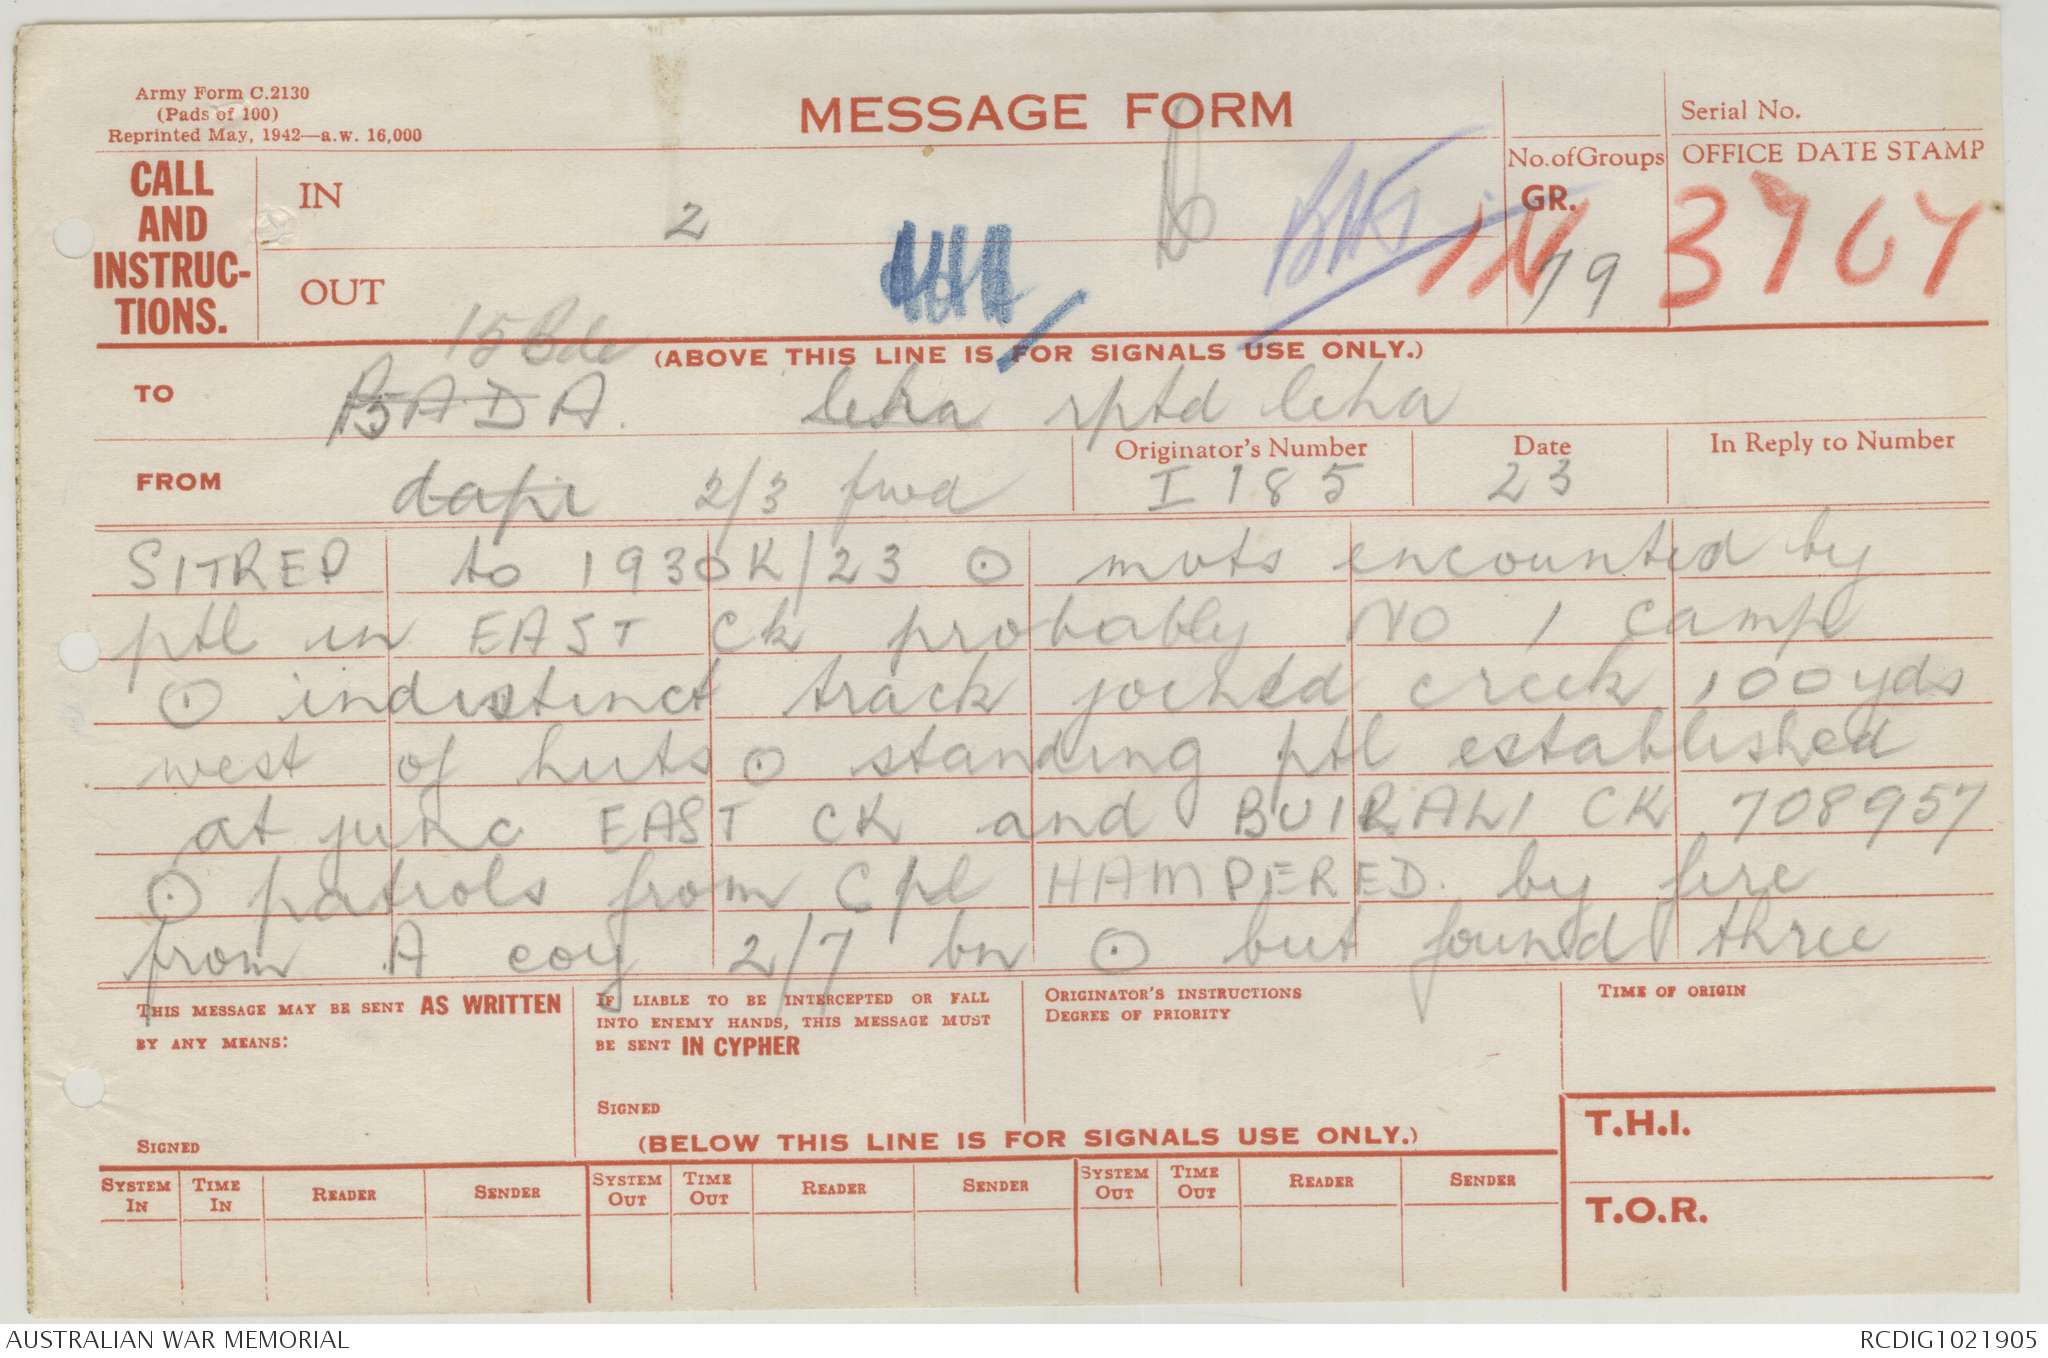 Army Form C.2130
(Pads of 100)
Reprinted May, 1942—a.w. 16,000
MESSAGE FORM
Serial No.
CALL AND INSTRUC-TIONS.
IN
OUT
2
No. of Groups
GR.
79
OFFICE DATE STAMP
IN 3707
(ABOVE THIS LINE IS FOR SIGNALS USE ONLY.)
15 Bde
TO BADA. leha rptd leha
FROM dapi 2/3 fwd
Originator's Number
I 185
Date
23
In Reply to Number
SITREP to 1930K/23 ⊙ mvts encounted by
ptl in EAST Ck probably NO 1 camp
⊙ indistinct track joined creek 100 yds
west of huts ⊙ standing ptl established
at junc EAST CK and BUIRALI CK 708957
⊙ patrols from C pl HAMPERED by fire
from A coy 2/7 bn ⊙ but found three
THIS MESSAGE MAY BE SENT AS WRITTEN
BY ANY MEANS:
SIGNED
IF LIABLE TO BE INTERCEPTED OR FALL
INTO ENEMY HANDS, THIS MESSAGE MUST
BE SENT IN CYPHER
SIGNED
ORIGINATOR'S INSTRUCTIONS
DEGREE OF PRIORITY
TIME OF ORIGIN
T.H.I.
T.O.R.
(BELOW THIS LINE IS FOR SIGNALS USE ONLY.)
SYSTEM IN TIME IN READER SENDER SYSTEM OUT TIME OUT READER SENDER SYSTEM OUT TIME OUT READER SENDER
AUSTRALIAN WAR MEMORIAL
RCDIG1021905